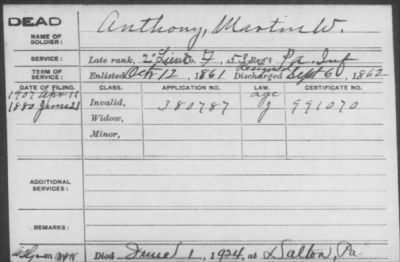 DEAD
NAME OF SOLDIER: Anthony, Martin W.
SERVICE: Late rank, 2" Lieut Co. F, 58 Reg't Pa. Inf
TERM OF SERVICE: Enlisted Oct 12, 1861 Discharged Resigned Sept 6, 1862
DATE OF FILING. CLASS. APPLICATION NO. LAW. CERTIFICATE NO.
1907 Apr 11 age
1880 June 21 Invalid, 380787 g 991070
Widow,
Minor,
ADDITIONAL SERVICES:
REMARKS:
Died June 1, 1924, at Dalton, Pa.